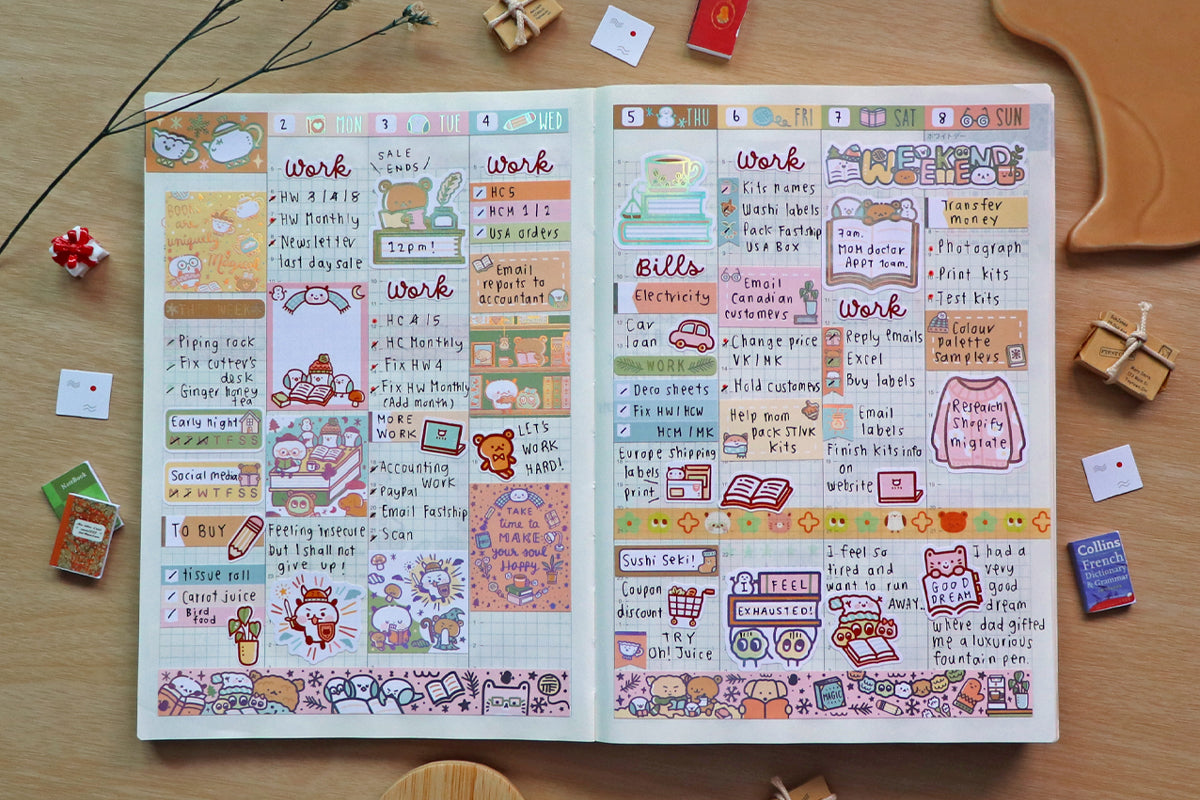 BOOKS
are
uniquely
Magical
THIS WEEK
Piping rock
Fix cutter's
desk
Ginger honey
tea
Early night
M T W T F S S
Social media
M T W T F S S
TO BUY
tissue roll
Carrot juice
Bird
food
2 MON
Work
HW 3/4/8
HW Monthly
Newsletter
last day sale
Feeling insecure
but I shall not
give up!
3 TUE
SALE
ENDS
12pm!
Work
HC 4/5
HC Monthly
Fix HW4
Fix HW Monthly
(Add month)
MORE
WORK
Accounting
Work
PayPal
Email Fastship
Scan
4 WED
Work
HC5
HCM 1/2
USA orders
Email
reports to
accountant
LET'S
WORK
HARD!
TAKE
time to
MAKE
your soul
Happy
5 THU
Bills
Electricity
Car
loan
WORK
Deco sheets
Fix HW/HCW
HCM/MK
Europe shipping
labels
print
Sushi Seki!
Coupon
discount
TRY
Oh! Juice
6 FRI
Work
Kits names
Washi labels
Pack Fastship
USA Box
Email
Canadian
customers
Change price
VK/MK
Hold customers
Help mom
pack ST/VK
Kits
I FEEL
EXHAUSTED!
7 SAT
WEEKEND
7am.
MOM doctor
APPT 10am.
Work
Reply emails
Excel
Buy labels
Email
labels
Finish kits info
on
website
I feel so
tired and
want to run
AWAY..
8 SUN
ホワイトデー
Transfer
money
Photograph
Print kits
Test kits
Colour
palette
samplers
Research
Shopify
migrate
GOOD
DREAM
I had a
very
good
dream
where dad gifted
me a luxurious
fountain pen.
MAGIC
NoteBook
Collins
French
Dictionary
& Grammar